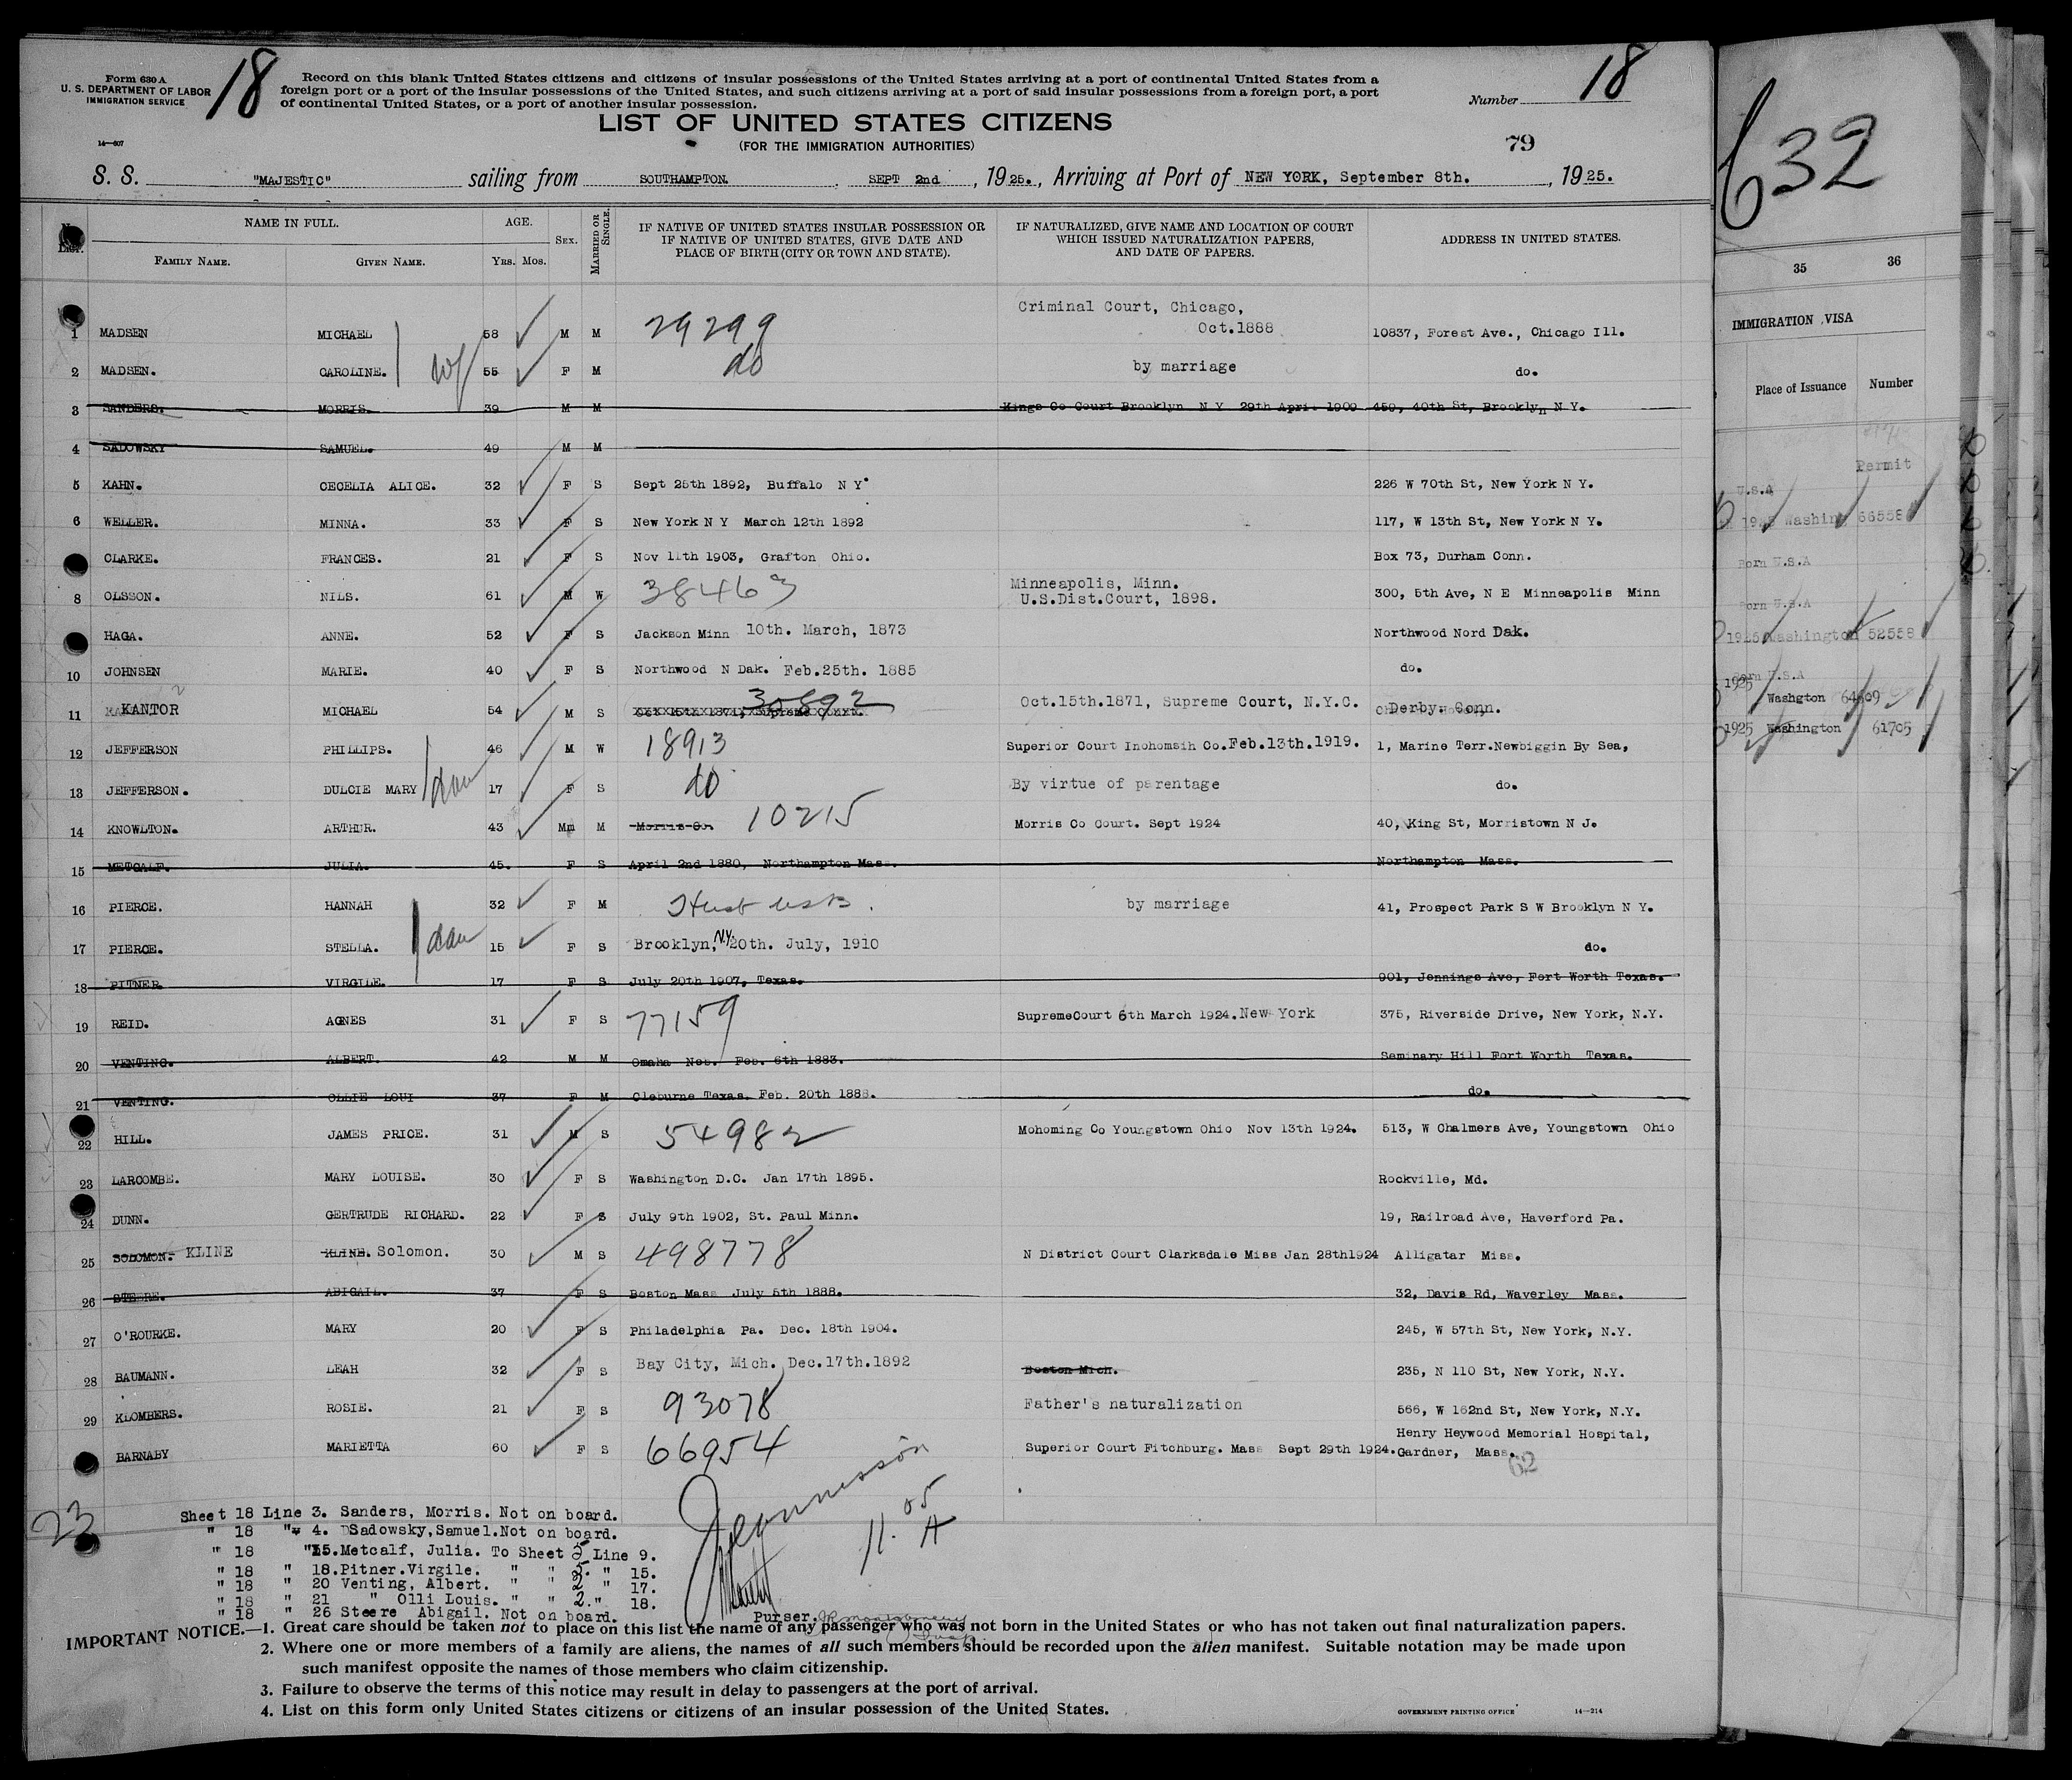 Form 630 A
U. S. DEPARTMENT OF LABOR
IMMIGRATION SERVICE
18
Record on this blank United States citizens and citizens of insular possessions of the United States arriving at a port of continental United States from a
foreign port or a port of the insular possessions of the United States, and such citizens arriving at a port of said insular possessions from a foreign port, a port
of continental United States, or a port of another insular possession.
Number 18
LIST OF UNITED STATES CITIZENS
(FOR THE IMMIGRATION AUTHORITIES)
79
14—607
S. S. "MAJESTIC" sailing from SOUTHAMPTON. SEPT 2nd, 1925., Arriving at Port of NEW YORK, September 8th., 1925.
NAME IN FULL. AGE. SEX. MARRIED OR SINGLE. IF NATIVE OF UNITED STATES INSULAR POSSESSION OR IF NATIVE OF UNITED STATES, GIVE DATE AND PLACE OF BIRTH (CITY OR TOWN AND STATE). IF NATURALIZED, GIVE NAME AND LOCATION OF COURT WHICH ISSUED NATURALIZATION PAPERS, AND DATE OF PAPERS. ADDRESS IN UNITED STATES.
FAMILY NAME. GIVEN NAME. YRS. MOS.
1 MADSEN MICHAEL 58 M M 29299 Criminal Court, Chicago, Oct.1888 10837, Forest Ave., Chicago Ill.
2 MADSEN. CAROLINE. wf 55 F M do by marriage do.
3 SANDERS. MORRIS. 39 M M Kings Co Court Brooklyn N Y 29th April 1909 459, 40th St, Brooklyn N Y.
4 SADOWSKY SAMUEL. 49 M M
5 KAHN. CECELIA ALICE. 32 F S Sept 25th 1892, Buffalo N Y. 226 W 70th St, New York N Y.
6 WELLER. MINNA. 33 F S New York N Y March 12th 1892 117, W 13th St, New York N Y.
CLARKE. FRANCES. 21 F S Nov 11th 1903, Grafton Ohio. Box 73, Durham Conn.
8 OLSSON. NILS. 61 M W 38463 Minneapolis, Minn. U.S.Dist.Court, 1898. 300, 5th Ave, N E Minneapolis Minn
HAGA. ANNE. 52 F S Jackson Minn 10th. March, 1873 Northwood Nord Dak.
10 JOHNSEN MARIE. 40 F S Northwood N Dak. Feb.25th. 1885 do.
11 KANTOR MICHAEL 54 M S 30892 Oct.15th.1871, Supreme Court, N.Y.C. Derby. Conn.
12 JEFFERSON PHILLIPS. 46 M W 18913 Superior Court Inohomsih Co.Feb.13th.1919. 1, Marine Terr.Newbiggin By Sea,
13 JEFFERSON. DULCIE MARY dau 17 F S do By virtue of parentage do.
14 KNOWLTON. ARTHUR. 43 Mm M Morris Co. 10215 Morris Co Court. Sept 1924 40, King St, Morristown N J.
15 METCALF. JULIA. 45. F S April 2nd 1880, Northampton Mass. Northampton Mass.
16 PIERCE. HANNAH 32 F M by marriage 41, Prospect Park S W Brooklyn N Y.
17 PIERCE. STELLA. dau 15 F S Brooklyn, N.Y. 20th. July, 1910 do.
18 PITNER VIRGILE. 17 F S July 20th 1907, Texas. 901, Jennings Ave, Fort Worth Texas.
19 REID. AGNES 31 F S 77159 SupremeCourt 6th March 1924.New York 375, Riverside Drive, New York, N.Y.
20 VENTING. ALBERT. 42 M M Omaha Neb. Feb. 6th 1883. Seminary Hill Fort Worth Texas.
21 VENTING. OLLIE LOUI 37 F M Cleburne Texas. Feb. 20th 1888. do.
22 HILL. JAMES PRICE. 31 M S 54982 Mohoming Co Youngstown Ohio Nov 13th 1924. 513, W Chalmers Ave, Youngstown Ohio
23 LARCOMBE. MARY LOUISE. 30 F S Washington D.C. Jan 17th 1895. Rockville, Md.
24 DUNN. GERTRUDE RICHARD. 22 F S July 9th 1902, St. Paul Minn. 19, Railroad Ave, Haverford Pa.
25 SOLOMON. KLINE KLINE. Solomon. 30 M S 498778 N District Court Clarksdale Miss Jan 28th1924 Alligatar Miss.
26 STEERE. ABIGAIL. 37 F S Boston Mass July 5th 1888. 32, Davis Rd, Waverley Mass.
27 O'ROURKE. MARY 20 F S Philadelphia Pa. Dec. 18th 1904. 245, W 57th St, New York, N.Y.
28 BAUMANN. LEAH 32 F S Bay City, Mich. Dec.17th.1892 Boston Mich. 235, N 110 St, New York, N.Y.
29 KLOMBERS. ROSIE. 21 F S 93078 Father's naturalization 566, W 162nd St, New York, N.Y.
BARNABY MARIETTA 60 F S 66954 Superior Court Fitchburg. Mass Sept 29th 1924. Henry Heywood Memorial Hospital, Gardner, Mass.
62
23
11.05 A
Sheet 18 Line 3. Sanders, Morris. Not on board.
" 18 " 4. Sadowsky,Samuel.Not on board.
" 18 "15.Metcalf, Julia. To Sheet 5 Line 9.
" 18 " 18.Pitner.Virgile. " " 5. " 15.
" 18 " 20 Venting, Albert. " " 2 " 17.
" 18 " 21 " Olli Louis. " " 2." 18.
" 18 " 26 Steere Abigail. Not on board.
Purser.
IMPORTANT NOTICE.—1. Great care should be taken not to place on this list the name of any passenger who was not born in the United States or who has not taken out final naturalization papers.
2. Where one or more members of a family are aliens, the names of all such members should be recorded upon the alien manifest. Suitable notation may be made upon
such manifest opposite the names of those members who claim citizenship.
3. Failure to observe the terms of this notice may result in delay to passengers at the port of arrival.
4. List on this form only United States citizens or citizens of an insular possession of the United States.
GOVERNMENT PRINTING OFFICE 14—214
632
35 36
IMMIGRATION VISA
Place of Issuance Number
Permit
U.S.A
66558
Born U.S.A
Born U.S.A
1925 Washington 52558
U.S.A
1925 Washgton
1925 Washington 61705